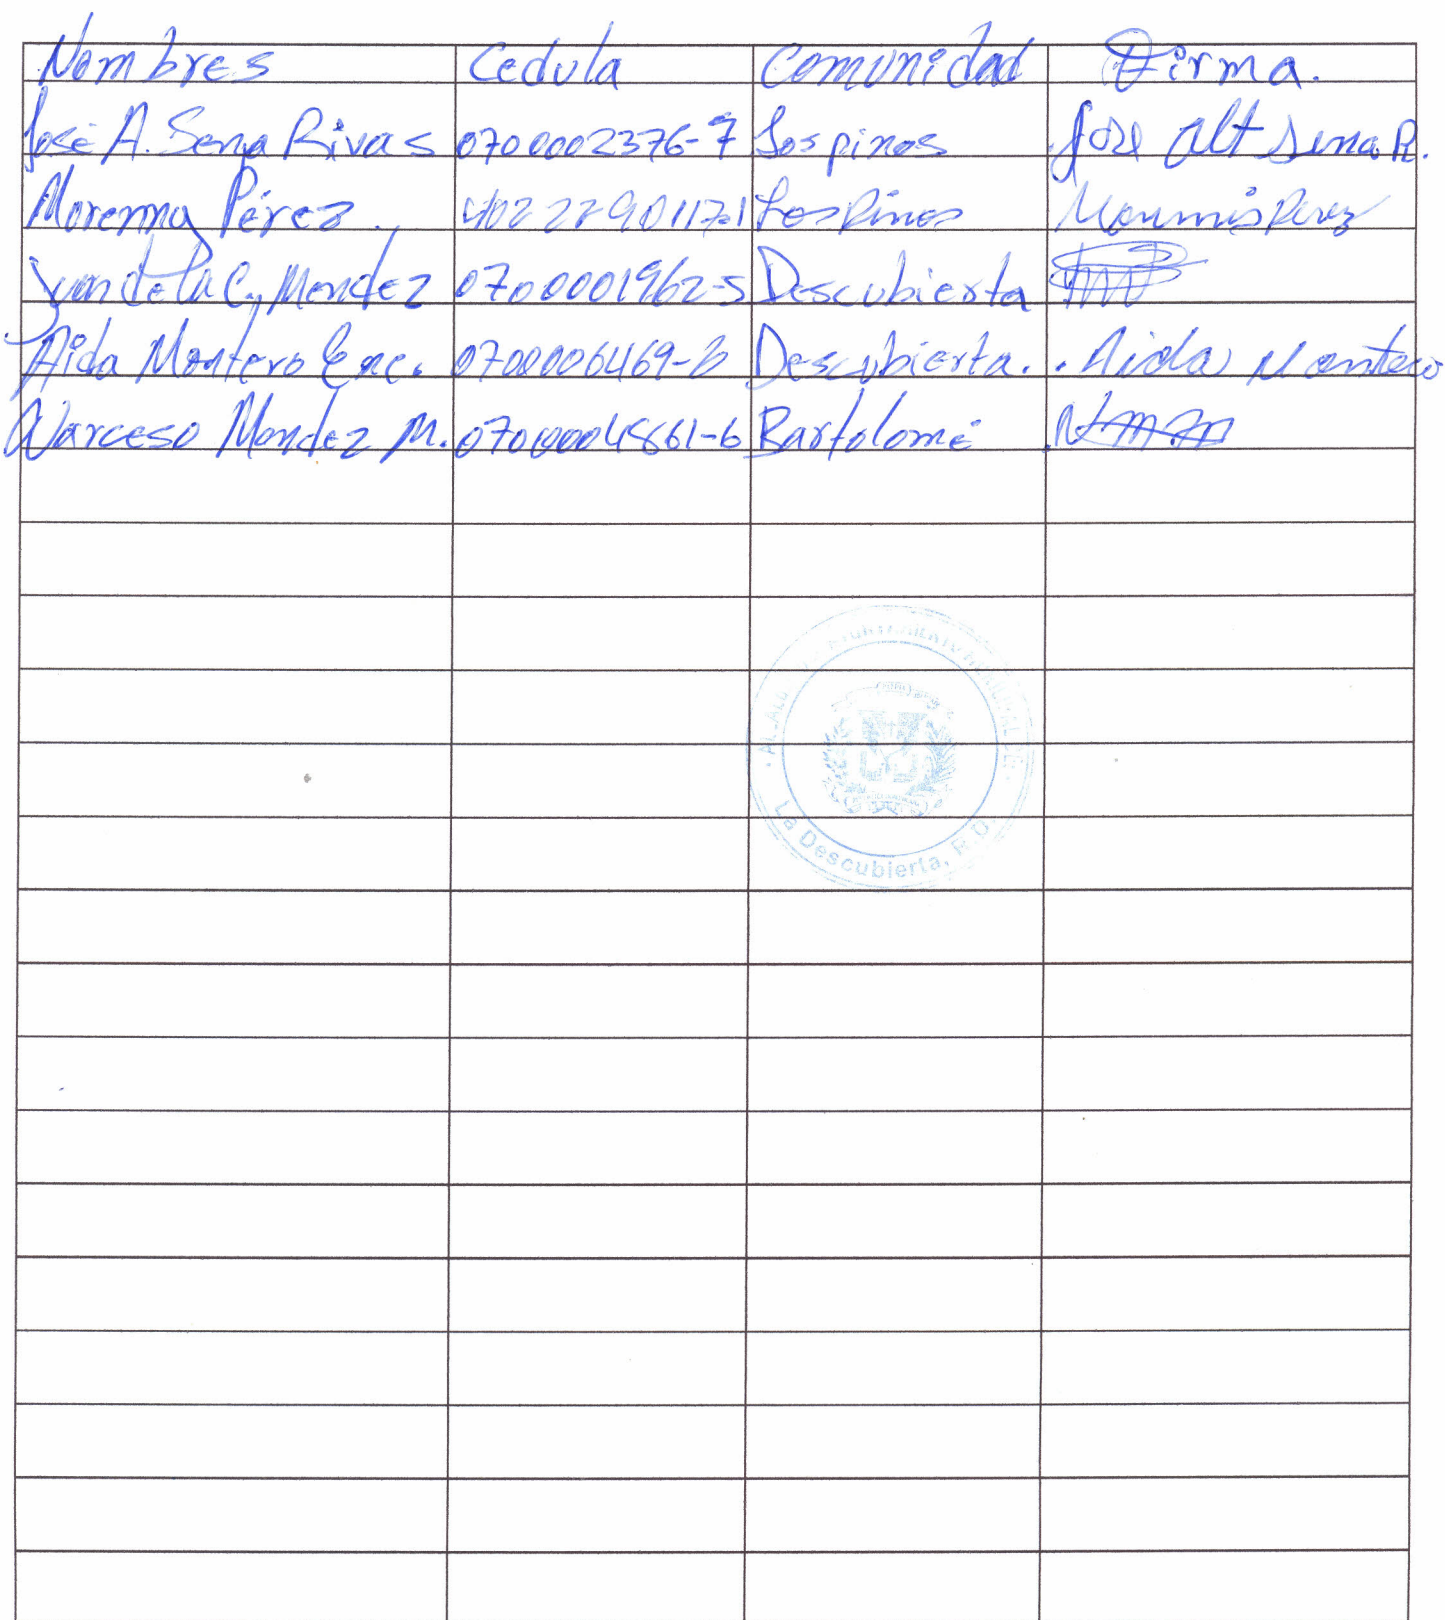 Nombres Cedula Comunidad Firma.
José A. Sena Rivas 0700002376-7 Los pinos José Alt Sena R.
Morenma Pérez 402 2290117-1 Los Pinos Perez
Juan de la C. Mendez 0700001962-5 Descubierta
Aida Montero Enc. 0700000469- Descubierta. Aida Montero
Narceso Mendez M. -6 Bartolomé
La Descubierta, R.D.